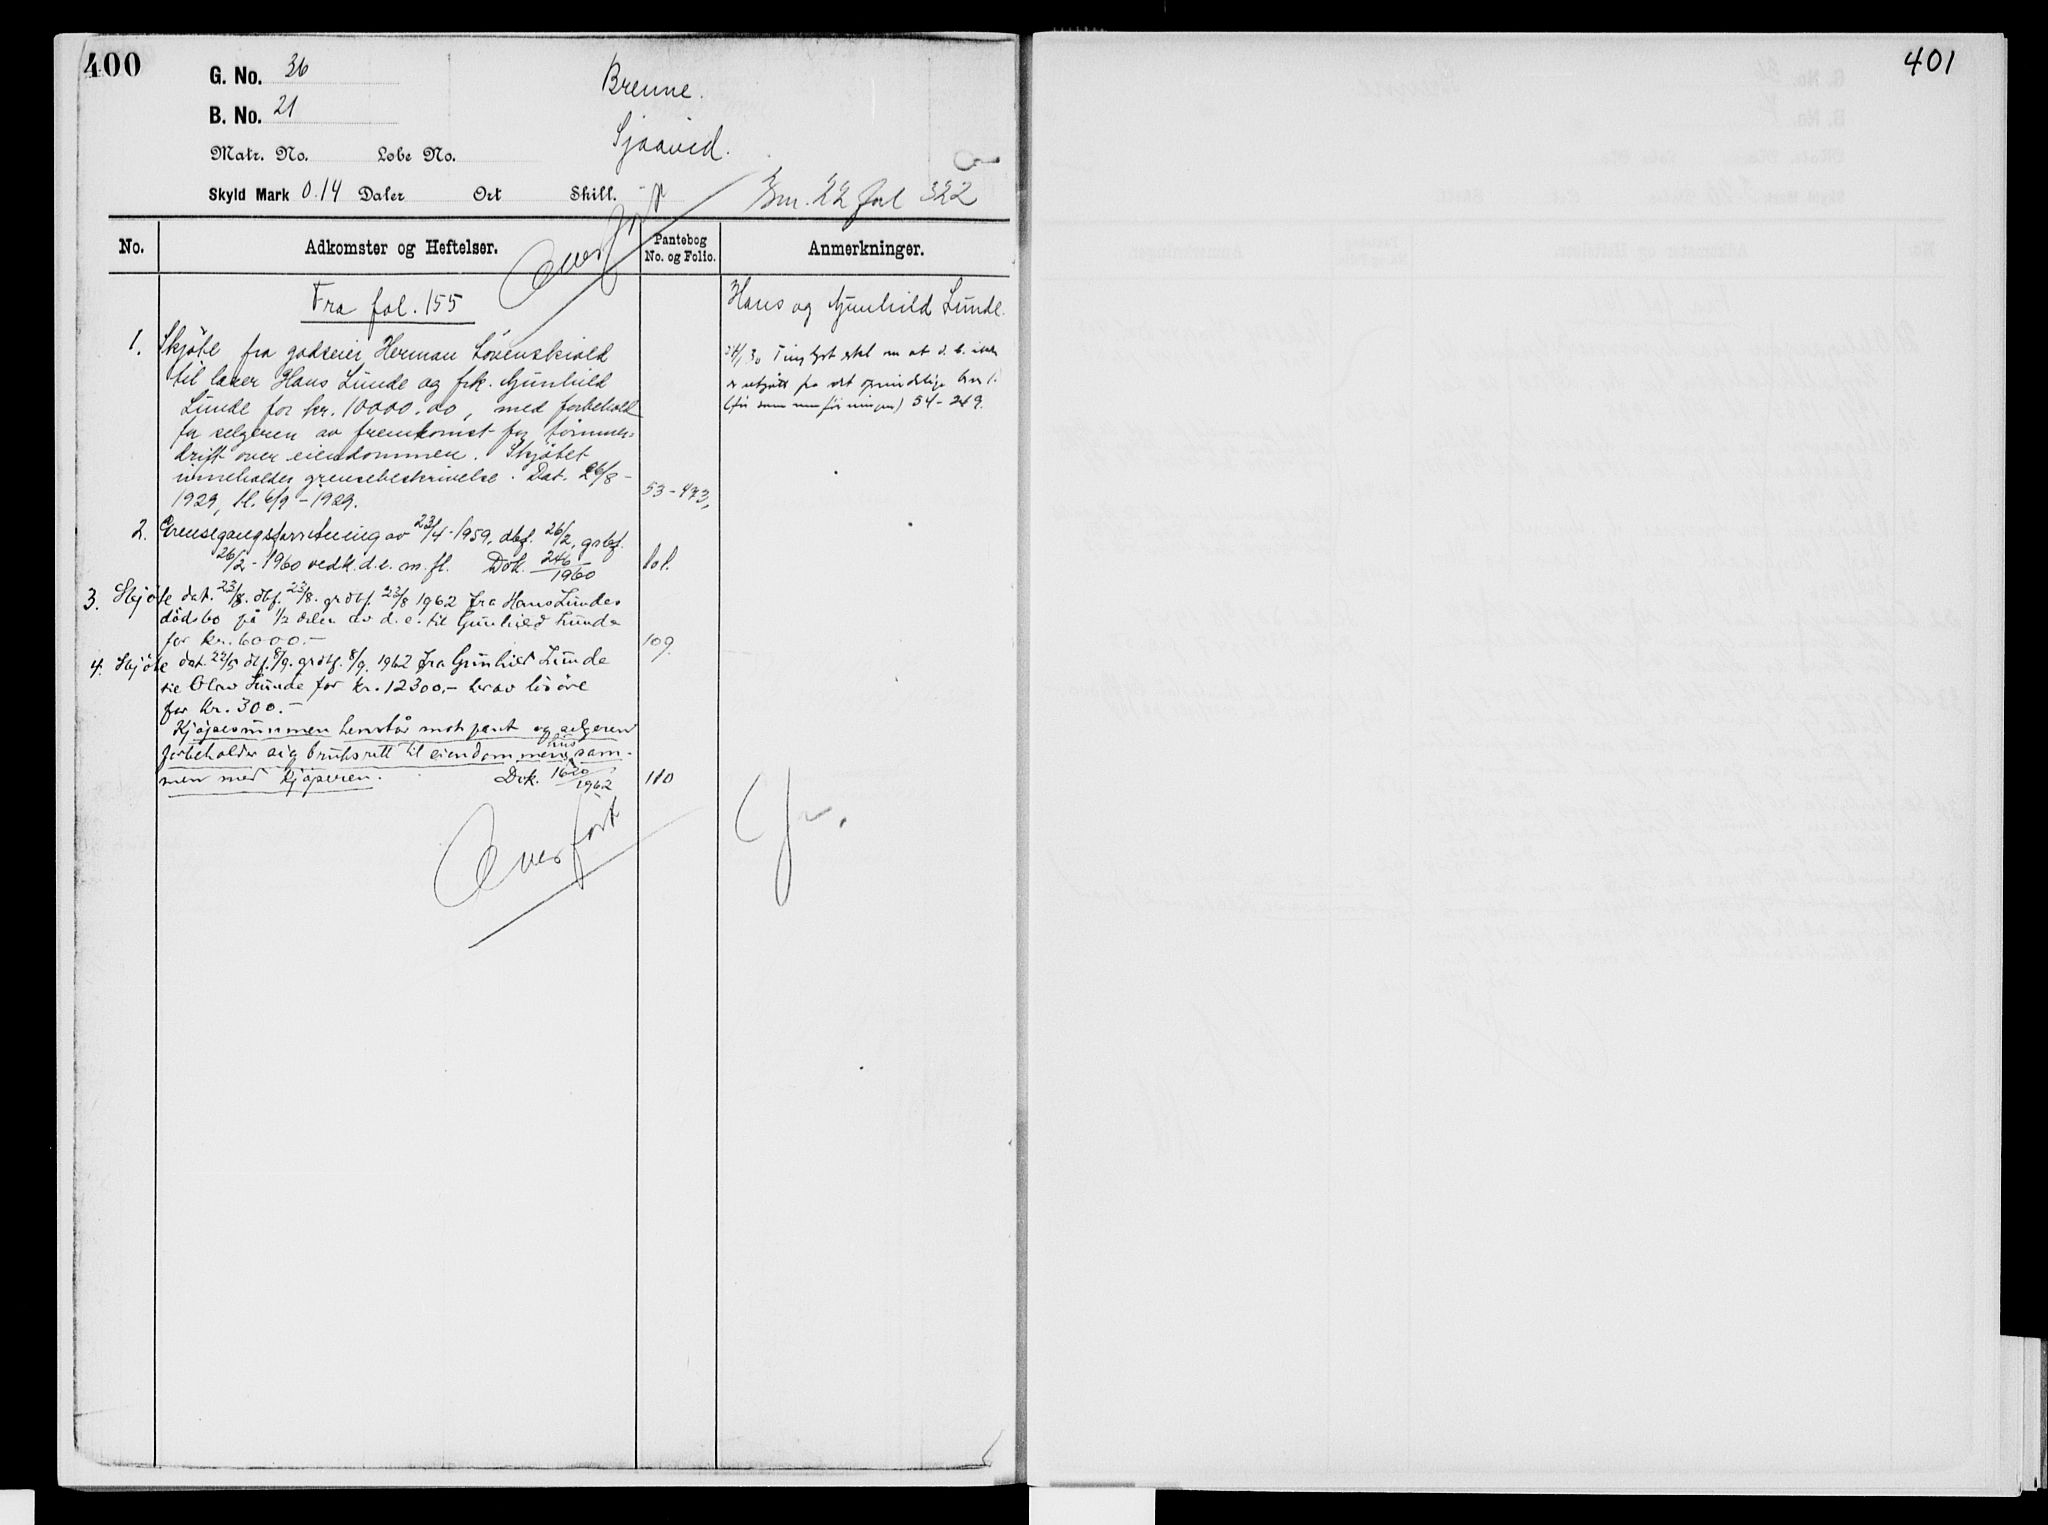 400
G. No. 36
Brenne.
B. No. 21
Sjaavid.
Matr. No. Løbe No.
Skyld Mark 0.14 Daler Ort Skill.
Bm. 22 fol 322
Overført
No. Adkomster og Heftelser. Pantebog No. og Folio. Anmerkninger.
Fra fol. 155
Hans og Gunhild Lunde.
1. Skjöte fra godseier Herman Lövenskiold
til lærer Hans Lunde og frk. Gunhild
Lunde for kr. 10000.00, med forbehold
for selgeren av fremkomst for tömmer-
drift over eiendommen. Skjötet
inneholder grensebeskrivelse. Dat. 26/8 -
1929, tl. 6/9 - 1929. 53-473,
Tinglyst erkl. om at d. e. ikke
er utgått fra det oprindelige bnr 1.
54-249.
2. Grensegangsforretning av 23/4-1959, dbf. 26/2, grbf.
26/2-1960 vedk. d.e. m. fl. Dok. 246/1960 lol.
3. Skjöte dat. 23/8. dbf. 23/8. grdbf. 23/8 1962 fra Hans Lundes
dödsbo på 1/2 delen av d. e. til Gunhild Lunde
for kr. 6000.- 109.
4. Skjöte dat. 22/5 dbf. 8/9. grdbf. 8/9. 1962 fra Gunhild Lunde
til Olav Lunde for kr. 12300,- herav lösöre
for kr. 300.-
Kjöpesummen henstår mot pant og selgeren
forbeholder sig bruksrett til eiendommens hus sam-
men med kjöperen. Dok. 1620/1962 110
Overført
401